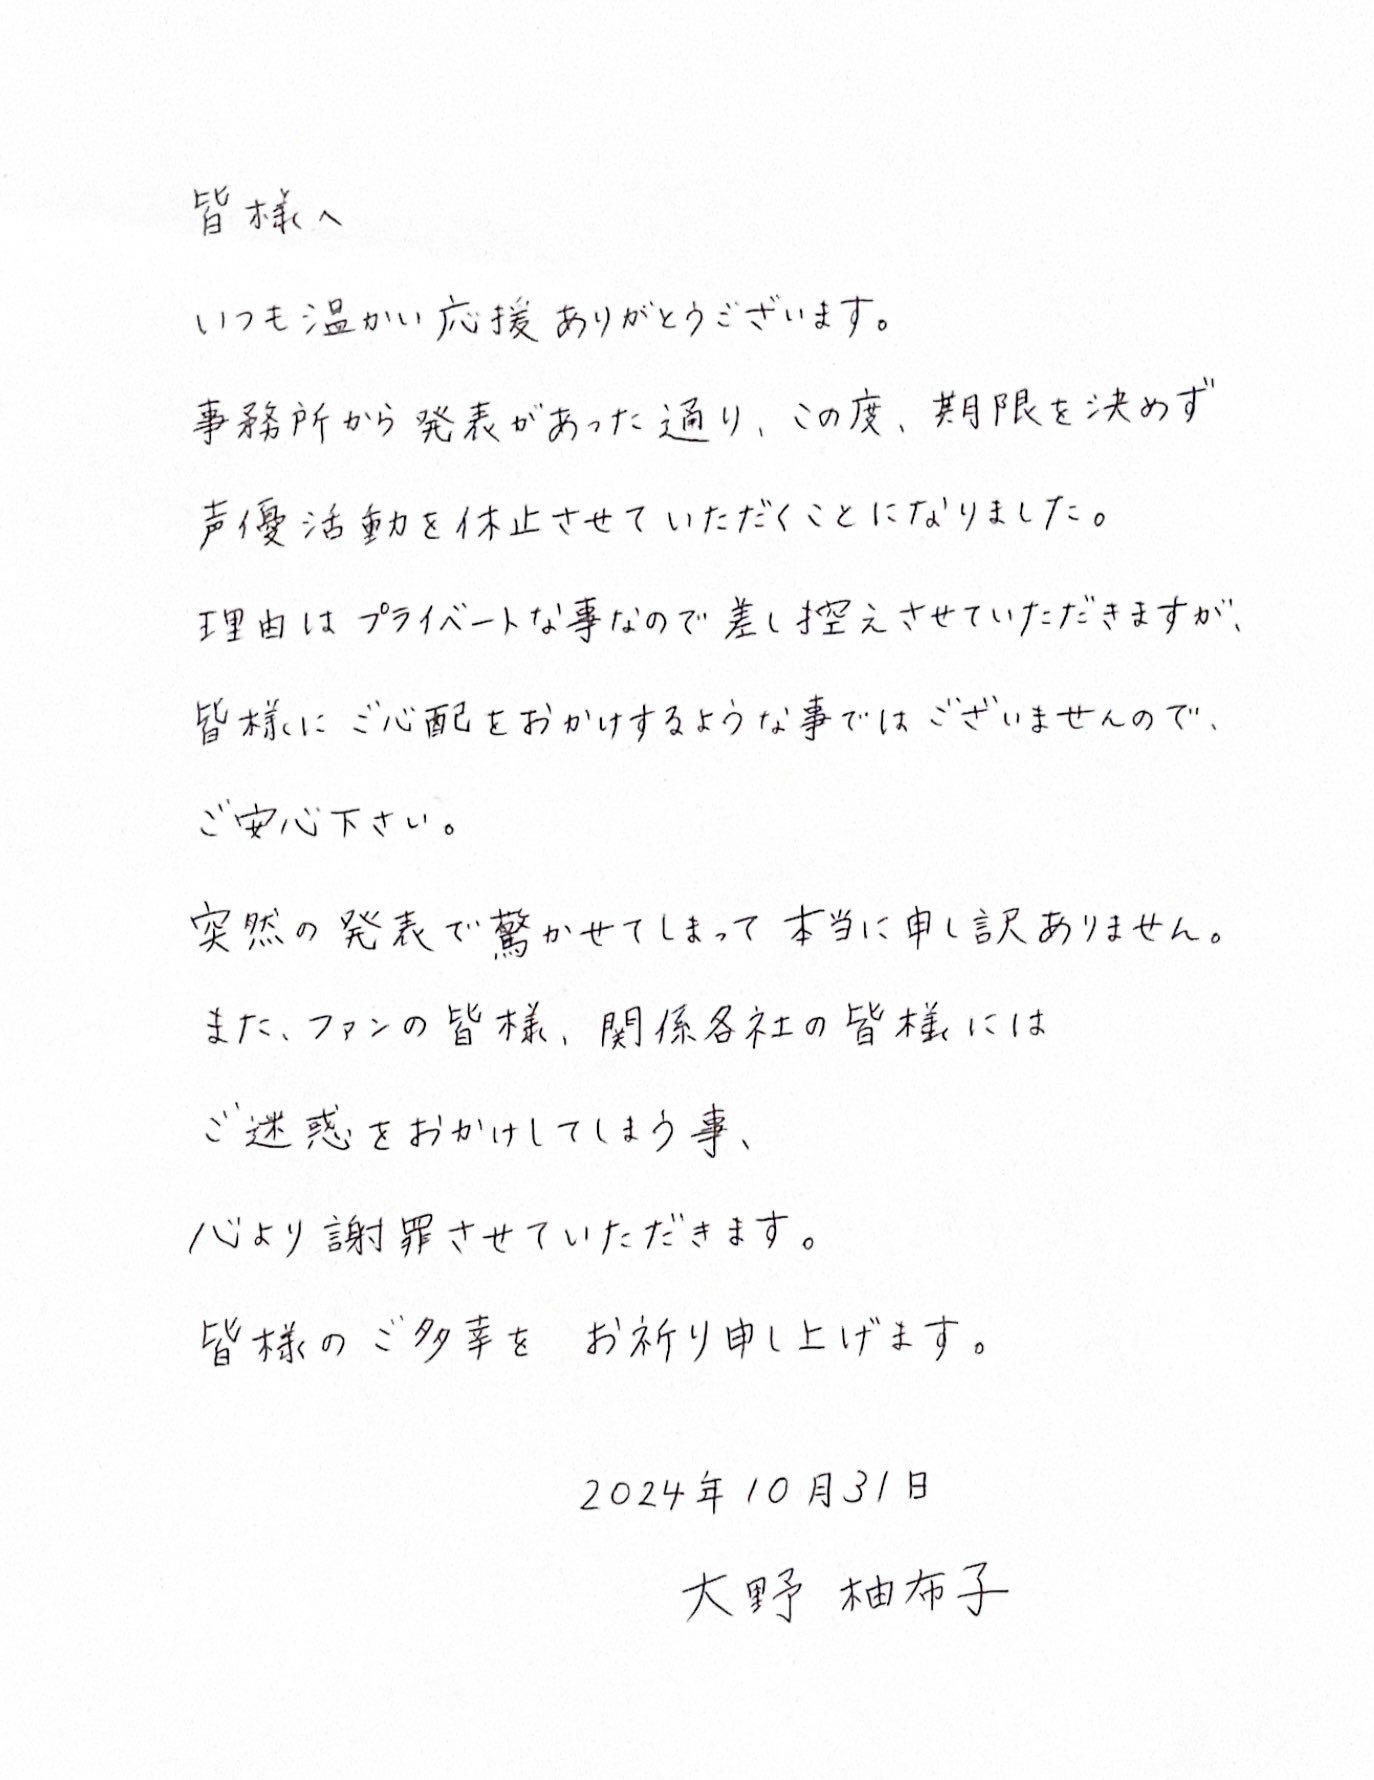 皆様へ
いつも温かい応援ありがとうございます。
事務所から発表があった通り、この度、期限を決めず
声優活動を休止させていただくことになりました。
理由はプライベートな事なので差し控えさせていただきますが、
皆様にご心配をおかけするような事ではございませんので、
ご安心下さい。
突然の発表で驚かせてしまって本当に申し訳ありません。
また、ファンの皆様、関係各社の皆様には
ご迷惑をおかけしてしまう事、
心より謝罪させていただきます。
皆様のご多幸を お祈り申し上げます。
2024年10月31日
大野 柚布子